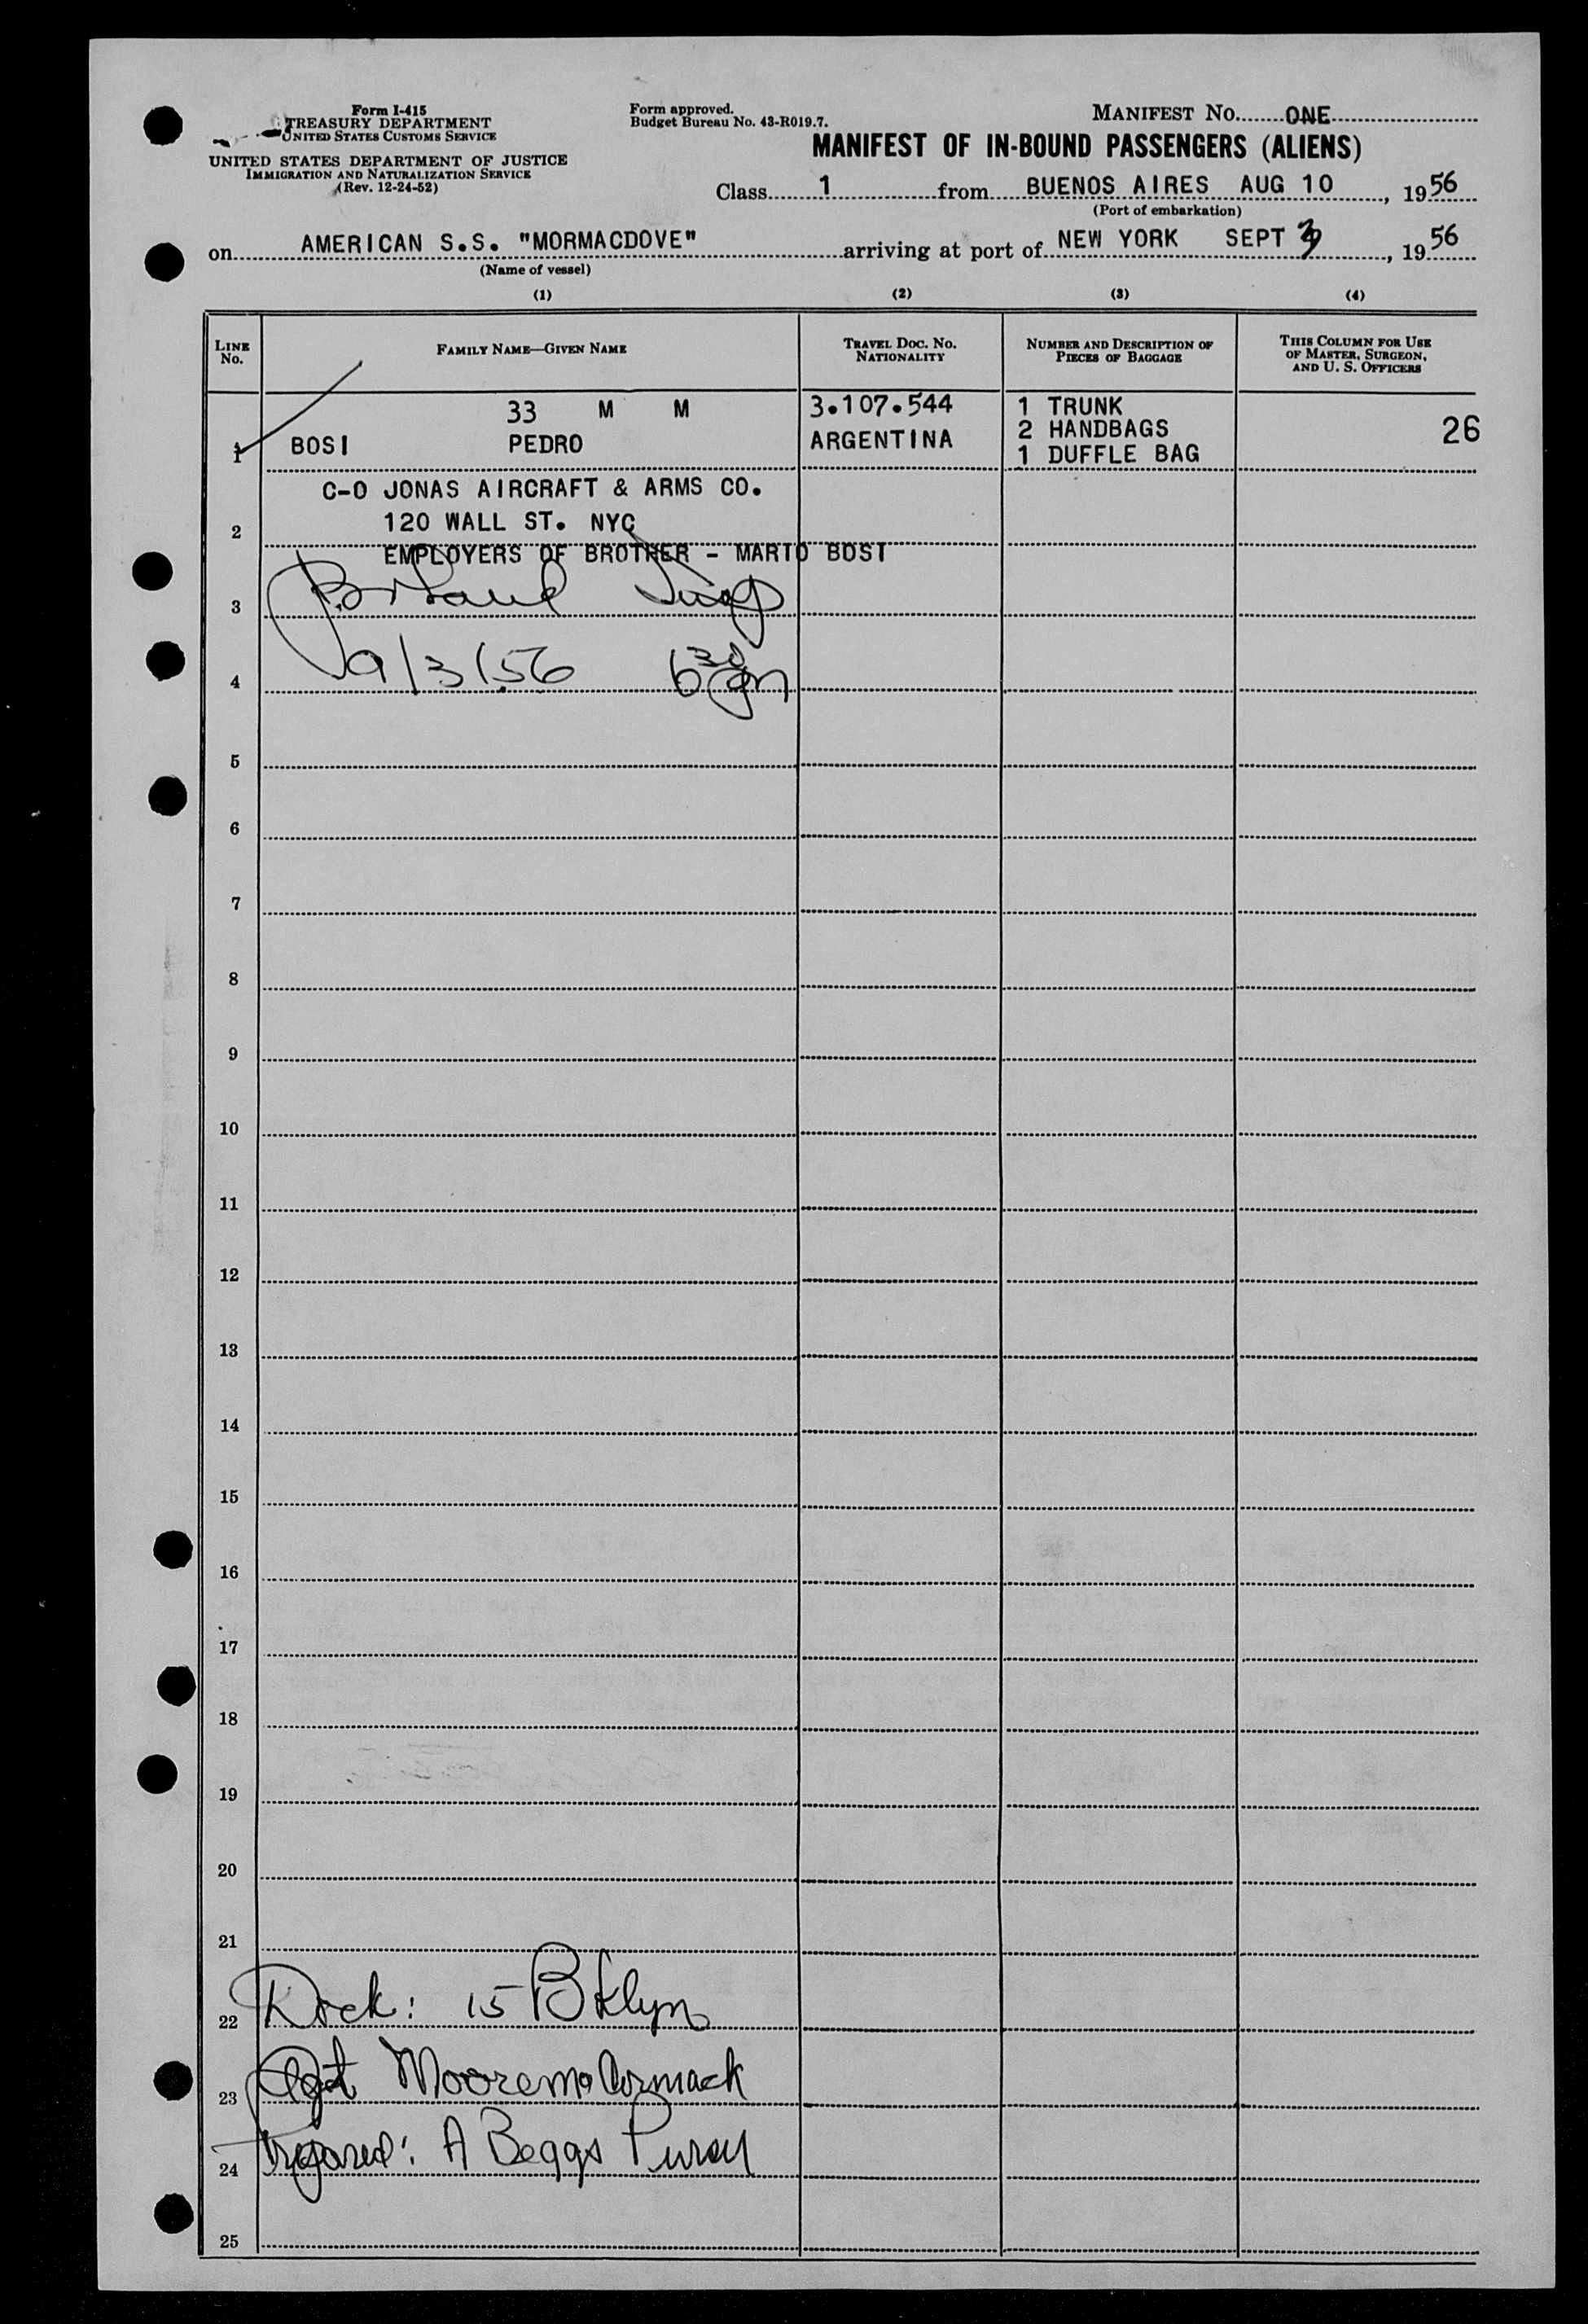 Form I-415
TREASURY DEPARTMENT
UNITED STATES CUSTOMS SERVICE
UNITED STATES DEPARTMENT OF JUSTICE
IMMIGRATION AND NATURALIZATION SERVICE
(Rev. 12-24-52)
Form approved.
Budget Bureau No. 43-R019.7.
MANIFEST No. ONE
MANIFEST OF IN-BOUND PASSENGERS (ALIENS)
Class 1 from BUENOS AIRES AUG 10, 1956
(Port of embarkation)
on AMERICAN S.S. "MORMACDOVE" arriving at port of NEW YORK SEPT 3, 1956
(Name of vessel)
(1) (2) (3) (4)
LINE No. FAMILY NAME—GIVEN NAME TRAVEL DOC. No. NATIONALITY NUMBER AND DESCRIPTION OF PIECES OF BAGGAGE THIS COLUMN FOR USE OF MASTER, SURGEON, AND U. S. OFFICERS
33 M M 3.107.544 1 TRUNK
1 BOSI PEDRO ARGENTINA 2 HANDBAGS 26
1 DUFFLE BAG
C-O JONAS AIRCRAFT & ARMS CO.
2 120 WALL ST. NYC
EMPLOYERS OF BROTHER - MARTO BOSI
3
4 9/3/56 6 30
5
6
7
8
9
10
11
12
13
14
15
16
17
18
19
20
21
22 Dock: 15 Bklyn
23 Agt MooremcCormack
24 Prepared: A Beggs
25